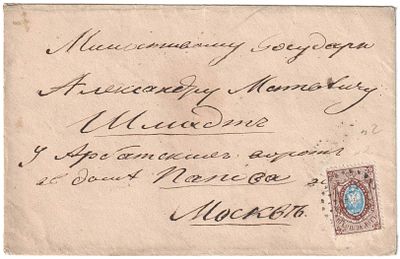 Милостивому Государю
Александру Матвевичу
Шмидтъ
У Арбатскихъ воротъ
въ домѣ
Москвѣ